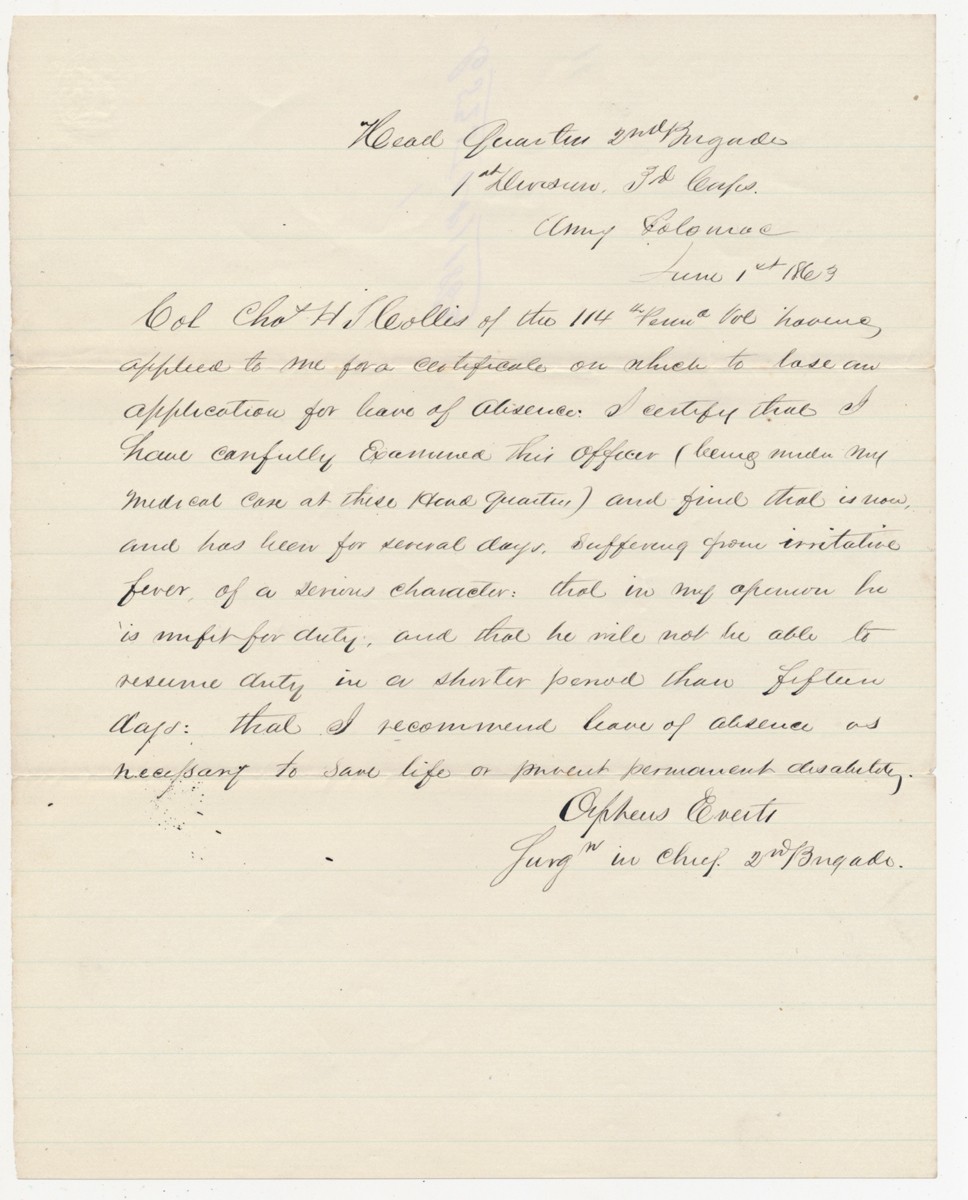 Head Quarters 2nd Brigade
1st Division. 3d Corps.
Army Potomac
June 1st 1863
Col Chas H T Collis of the 114th Penna Vol having
applied to me for a certificate on which to base an
application for leave of absence. I certify that I
have carefully Examined this officer (being under my
medical care at these Head Quarters) and find that is now,
and has been for several days, suffering from irritative
fever, of a serious character: that in my opinion he
is unfit for duty, and that he will not be able to
resume duty in a shorter period than fifteen
days: that I recommend leave of absence as
necessary to save life or prevent permanent disability.
Orpheus Everts
Surgn in chief 2nd Brigade.